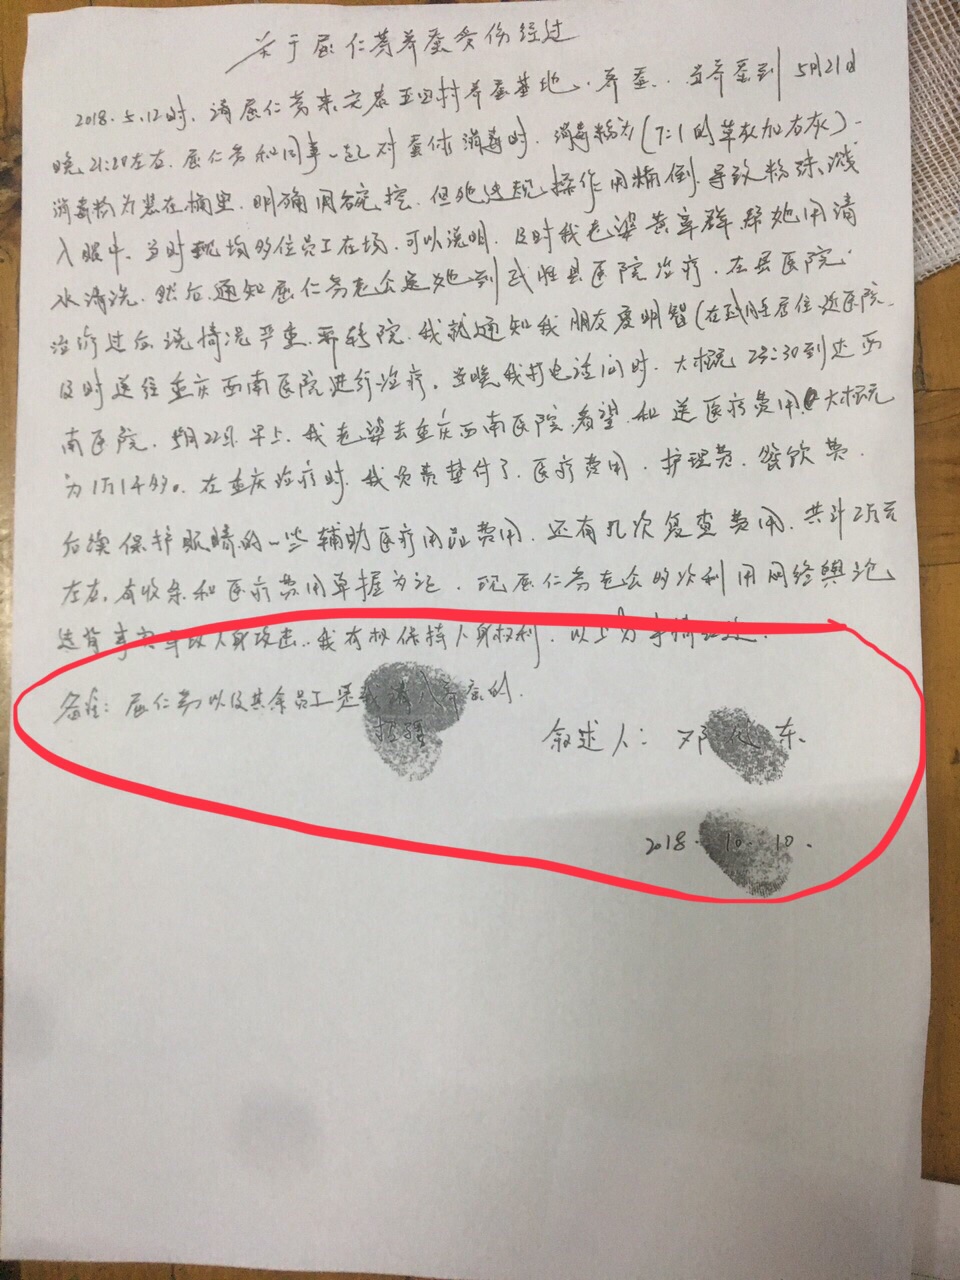 关于屈仁芳养蚕受伤经过
2018.5.12时.请屈仁芳来定农五四村养蚕基地.养蚕.当养蚕到5月21日
晚21:20左右.屈仁芳和同事一起对蚕体消毒时.消毒粉为(7:1的草灰加石灰).
消毒粉为装在桶里.明确用碗挖.但她违规操作用桶倒.导致粉珠溅
入眼中.当时现场多位员工在场.可以说明.及时我老婆黄宰群帮她用清
水清洗.然后通知屈仁芳老公送她到武胜县医院治疗.在县医院.
治疗过后说情况严重.要转院.我就通知我朋友夏明智(在武胜居住近医院.
及时送往重庆西南医院进行治疗.当晚我打电话问时.大概23:30到达西
南医院.5月22日早上.我老婆去重庆西南医院看望.和送医疗费用.大概元
为1万1千多。在重庆治疗时.我负责垫付了.医疗费用.护理费.餐饮费.
后续保护眼睛的一些辅助医疗用品费用.还有几次复查费用.共计2万元
左右.有收条和医疗费用单据为记.现屈仁芳老公多次利用网络舆论
违背事实 人身攻击..我有权保持人身权利.以上为事情经过.
备注:屈仁芳以及其余员工是我请人养蚕的.
叙述人:邓 东.
2018.10.10.